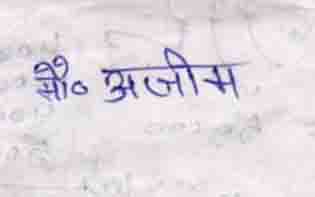 मौ० अजीम